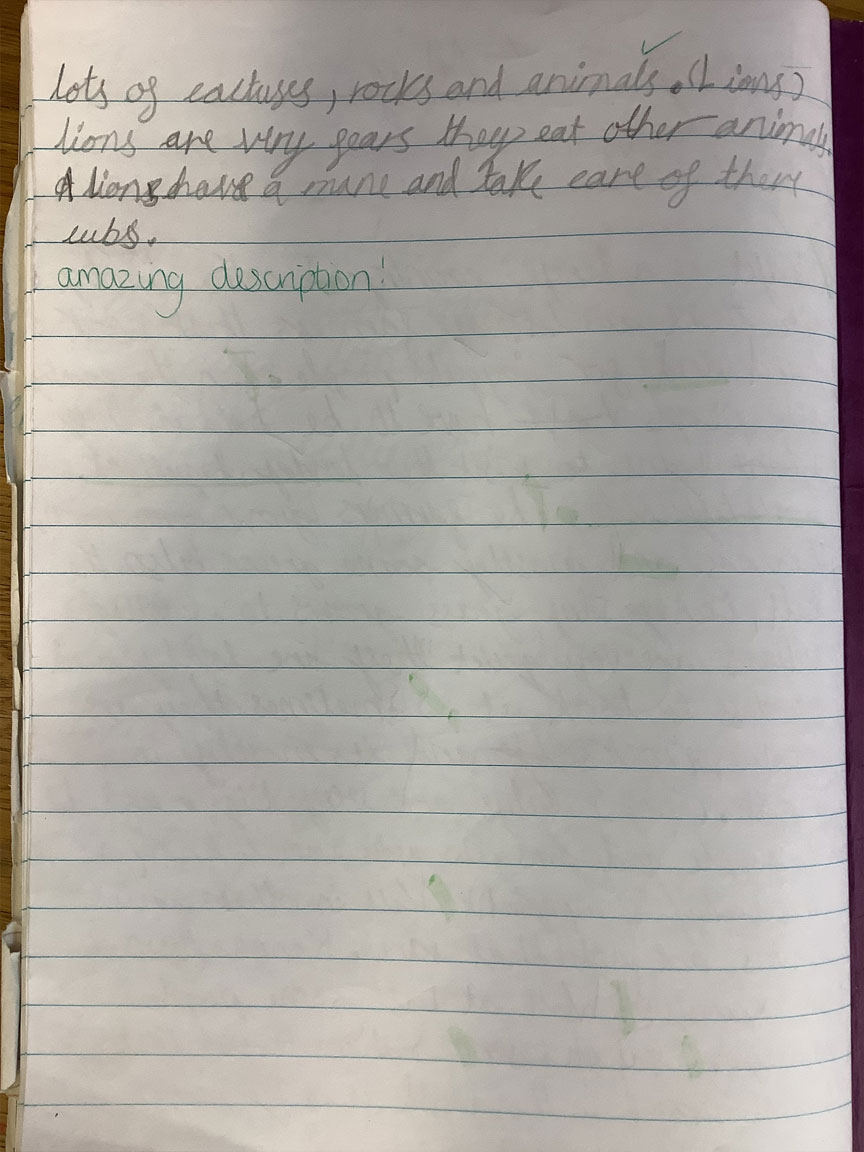 lots of cactuses, rocks and animals. (Lions)
lions are very fears they eat other animals.
A lions have a mane and take care of there
cubs.
amazing description!